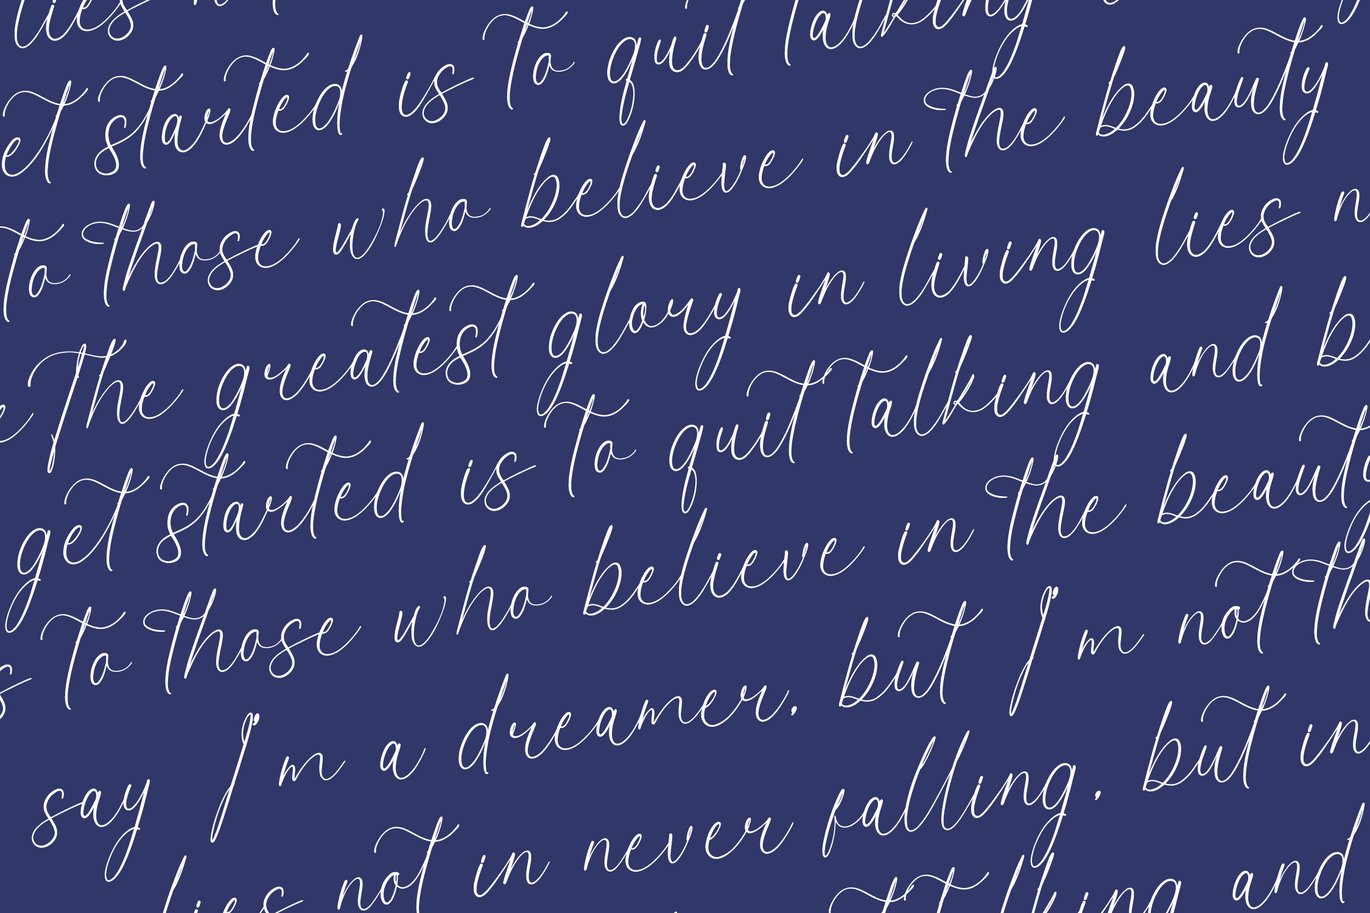 lies
et started is to quit talking
to those who believe in the beauty
e The greatest glory in living lies n
get started is to quit talking and b
s to those who believe in the beauty
say I'm a dreamer, but I'm not th
lies not in never falling, but in
talking and